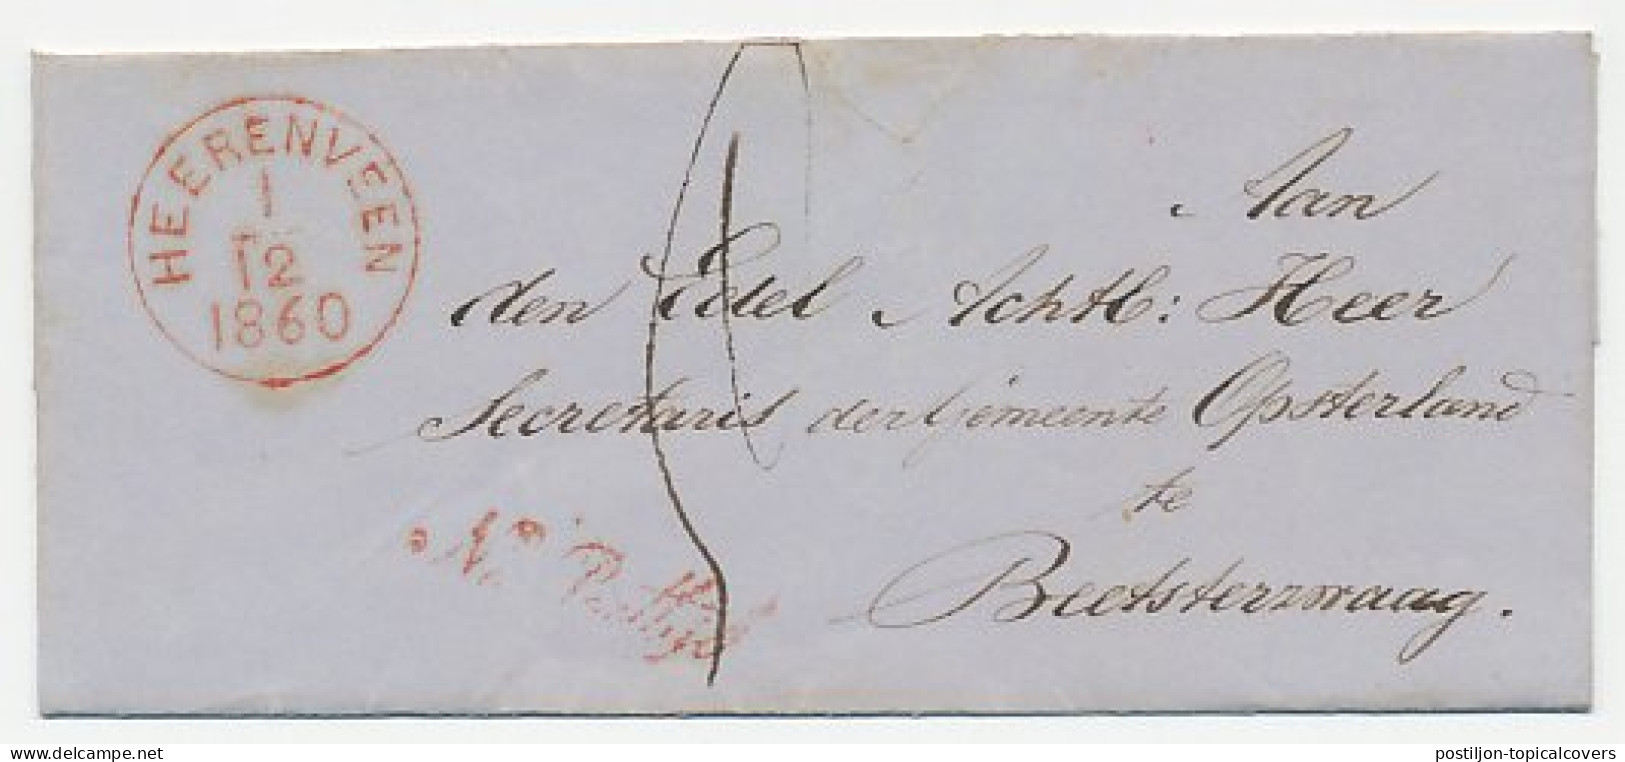 HEERENVEEN
1
12
1860
Aan
den Edel Achtb: Heer
Secretaris der Gemeente Opsterland
te
Beetsterzwaag.
Na Posttijd
www.delcampe.net
postiljon-topicalcovers